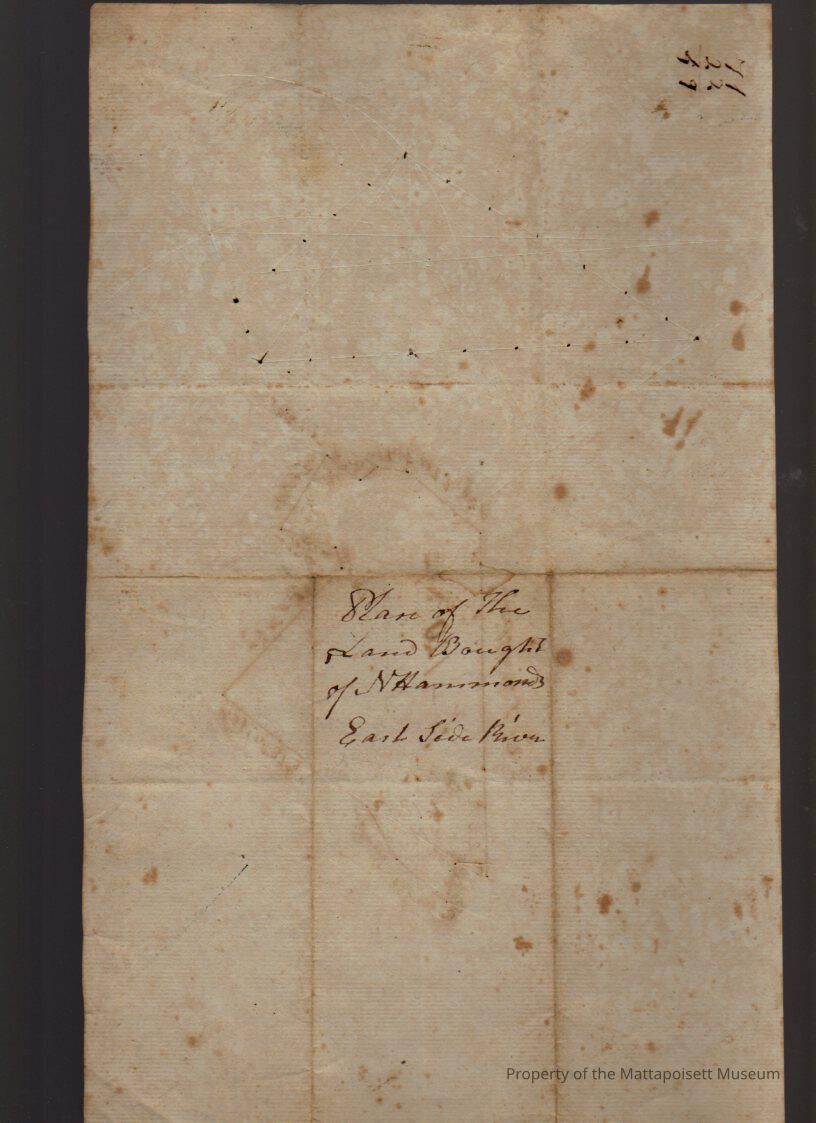 Plan of The
Land Bought
of N Hammonds
East Side River
Property of the Mattapoisett Museum